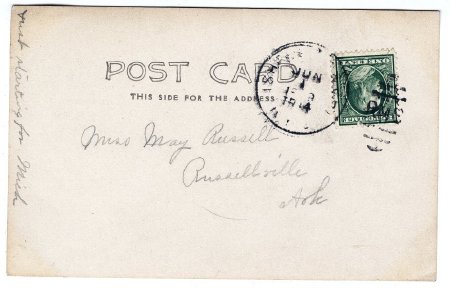 POST CARD
THIS SIDE FOR THE ADDRESS
JUN
Miss May Russell
Russellville
Ark
Just starting for